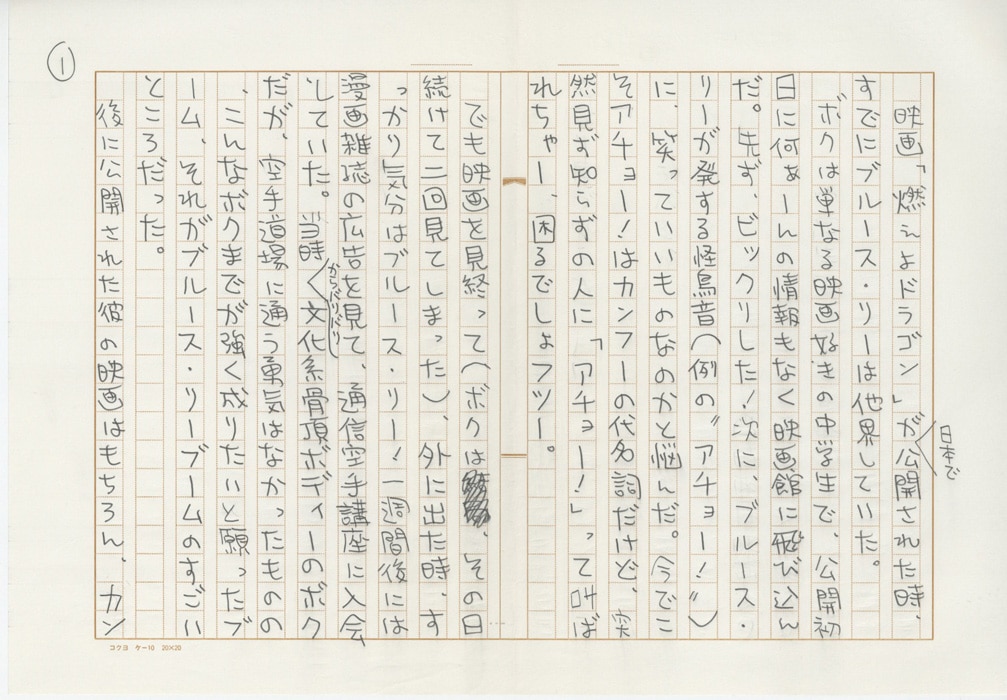 ①
映画「燃えよドラゴン」が日本で公開された時、
すでにブルース・リーは他界していた。
ボクは単なる映画好きの中学生で、公開初
日に何ぁーんの情報もなく映画館に飛び込ん
だ。先ず、ビックリした！次に、ブルース・
リーが発する怪鳥音（例の〝アチョー！〟）
に、笑っていいものなのかと悩んだ。今でこ
そアチョー！はカンフーの代名詞だけど、突
然見ず知らずの人に「アチョー！」って叫ば
れちゃー、困るでしょフツー。
でも映画を見終って（ボクは、その日
続けて二回見てしまった）、外に出た時、す
っかり気分はブルース・リー！一週間後には
漫画雑誌の広告を見て、通信空手講座に入会
していた。当時からバリバリ文化系骨頂ボディーのボク
だが、空手道場に通う勇気はなかったものの
、こんなボクまでが強く成りたいと願ったブ
ーム、それがブルース・リーブームのすごい
ところだった。
後に公開された彼の映画はもちろん、カン
コクヨ ケー10 20×20